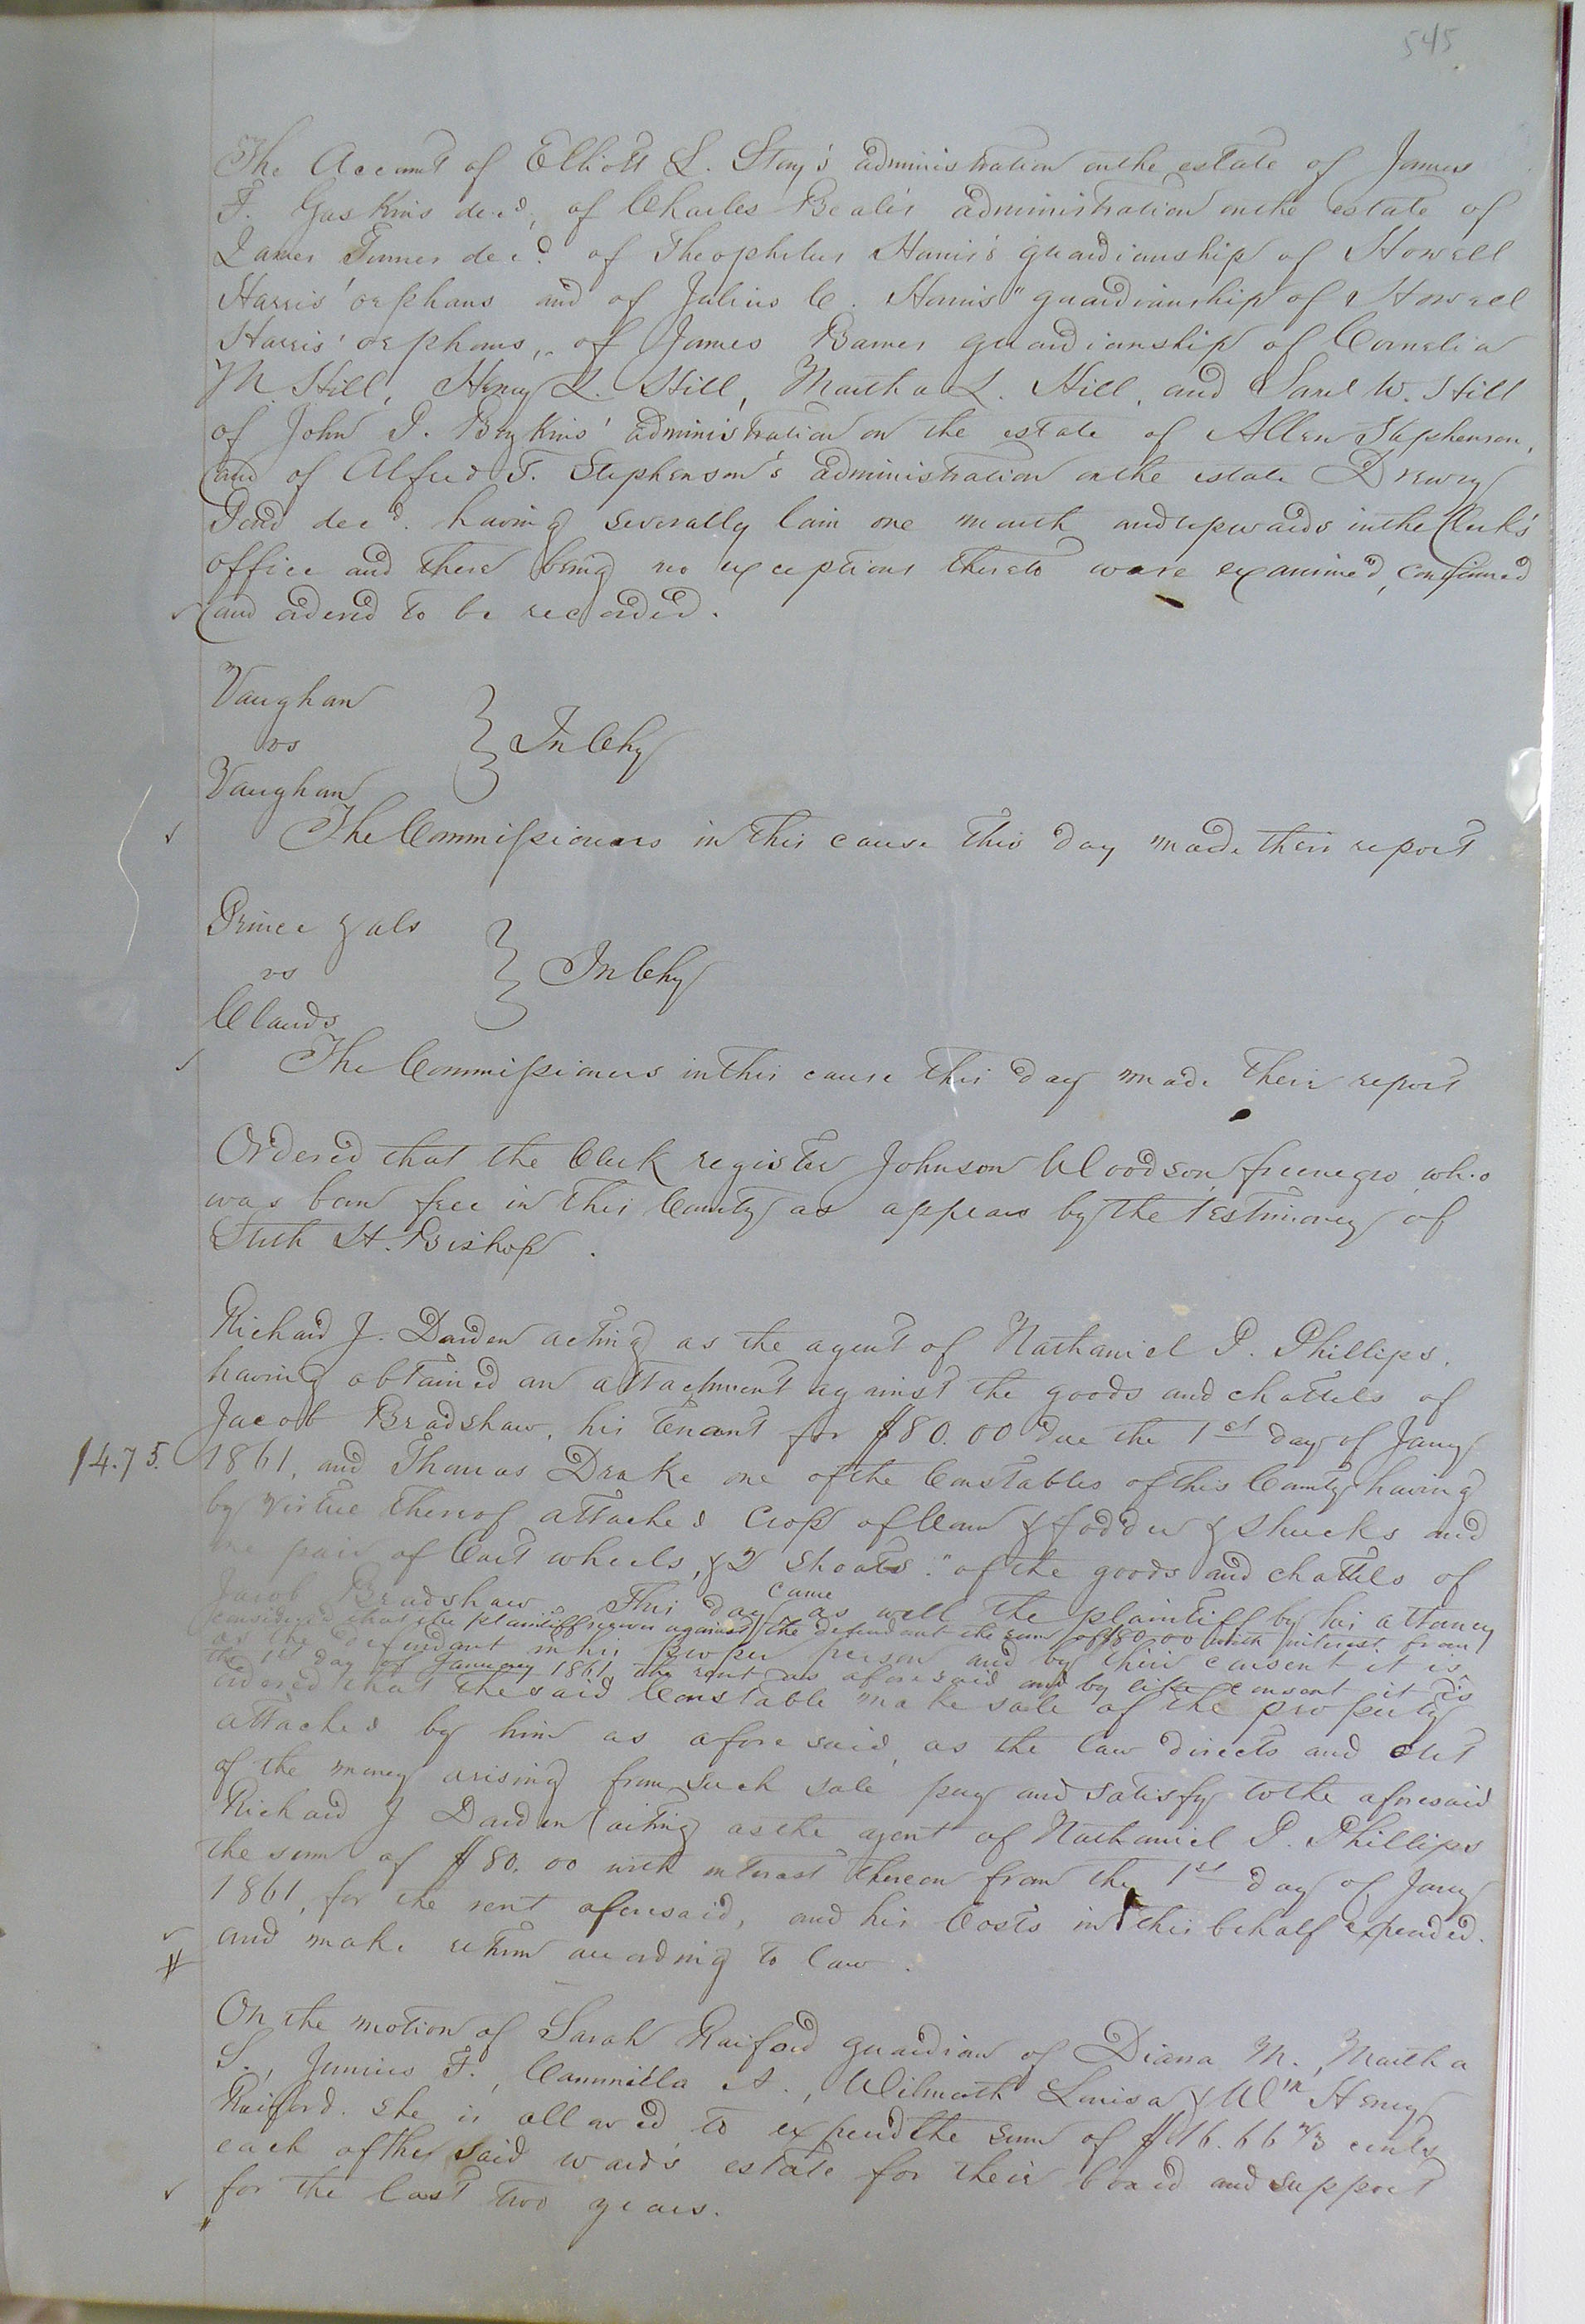 545
The Account of Elliott L. Story's administration on the estate of James
F. Gaskins decd, of Charles Beale's administration on the estate of
James Turner decd. of Theophilus Harris's guardianship of Howell
Harris' orphans and of Julius C. Harris" guardianship of Howell
Harris' orphans, of James Barnes guardianship of Cornelia
M. Hill, Henry L. Hill, Martha L. Hill, and Saml W. Hill
of John P. Boykins' administration on the estate of Allen Stephenson,
and of Alfred T. Stephenson's administration on the estate Drewry
Pond decd. having severally lain one month and upwards in the Clerk's
office and there being no exceptions thereto were examined, confirmed
and ordered to be recorded.
Vaughan
vs } In Chy
Vaughan
The Commissioners in this cause this day made their report
Prince & als
vs } In Chy
Clauds
The Commissioners in this cause this day made their report
Ordered that the Clerk register Johnson Woodson, free negro, who
was born free in this County as appears by the testimony of
Stith H. Bishop.
Richard J. Darden acting as the agent of Nathaniel P. Phillips,
having obtained an attachment against the goods and chattels of
Jacob Bradshaw, his tenant for $80.00 due the 1st day of Jany
14.75. 1861, and Thomas Drake one of the Constables of this County having
by virtue thereof attached Crop of Corn & fodder & shucks and
one pair of Cart wheels, & 2 shoats." of the goods and chattels of
came
Jacob Bradshaw. This day as well the plaintiff by his attorney
considered that the plaintiff recover against the defendant the sum of $80.00 with interest from
as the defendant in his proper person and by their consent it is
the 1st day of January 1861, the rent as aforesaid and by like consent it is
ordered that the said Constable make sale of the property
attached by him as aforesaid, as the law directs and out
of the money arising from such sale pay and satisfy to the aforesaid
Richard J Darden acting as the agent of Nathaniel P. Phillips
the sum of $80.00 with interest thereon from the 1st day of Jany
1861, for the rent aforesaid, and his Costs in this behalf expended.
and make return according to law.
On the motion of Sarah Raiford guardian of Diana M., Martha
S., Junius F., Cammilla A., Wilmoth Louisa & Wm Henry
Raiford. she is allowed to expend the sum of $16.66 2/3 cents
each of the said ward's estate for their board and support
for the last two years.